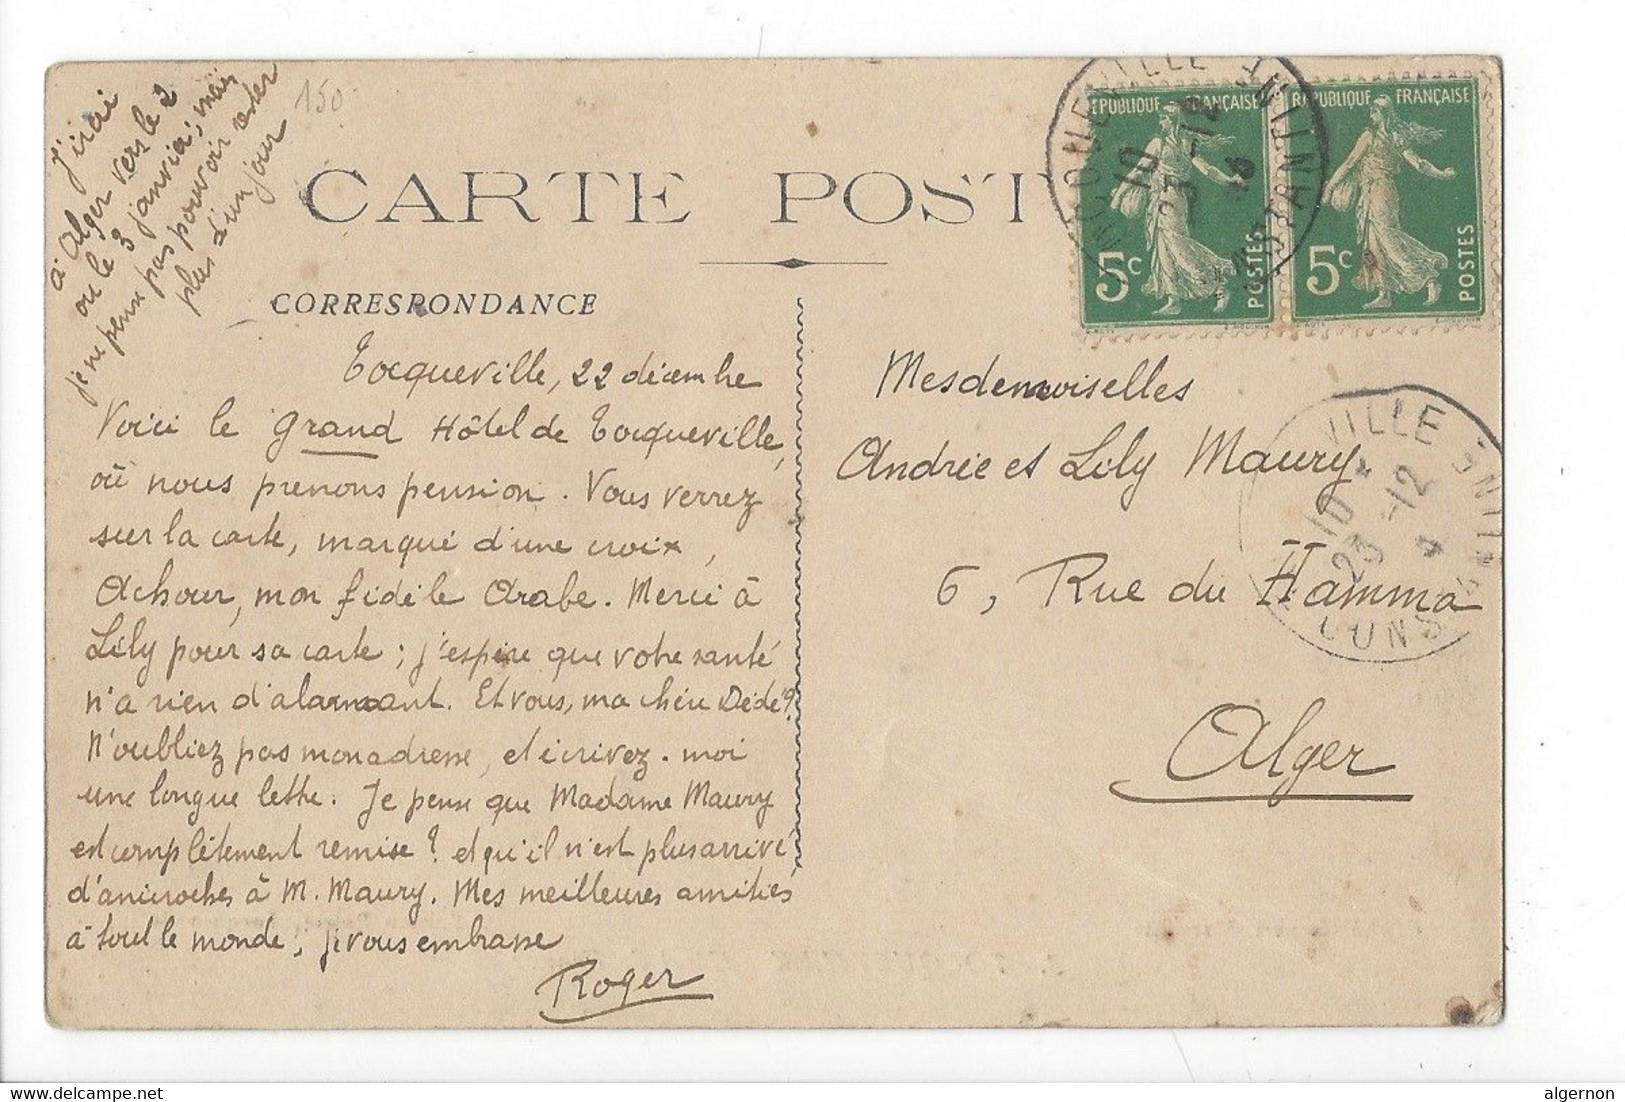 J'irai
à Alger vers le 2
ou le 3 janvier ; mais
je ne pense pas pouvoir rester
plus d'un jour
150
CARTE POST
CORRESPONDANCE
Tocqueville, 22 décembre
Voici le Grand Hôtel de Tocqueville,
où nous prenons pension. Vous verrez
sur la carte, marqué d'une croix,
Achour, mon fidèle Arabe. Merci à
Lily pour sa carte ; j'espère que votre santé
n'a rien d'alarmant. Et vous, ma chère Dédé ?
N'oubliez pas mon adresse, et écrivez-moi
une longue lettre. Je pense que Madame Maury
est complètement remise ? et qu'il n'est plus arrivé
d'anicroches à M. Maury. Mes meilleures amitiés
à tout le monde, je vous embrasse
Roger
RÉPUBLIQUE FRANÇAISE
5c
POSTES
RÉPUBLIQUE FRANÇAISE
5c
POSTES
TOCQUEVILLE
10
23 -12
CONSTANTINE
Mesdemoiselles
Andrée et Lily Maury.
6, Rue du Hamma
Alger
VILLE
10
23 -12
CONS
www.delcampe.net
algernon